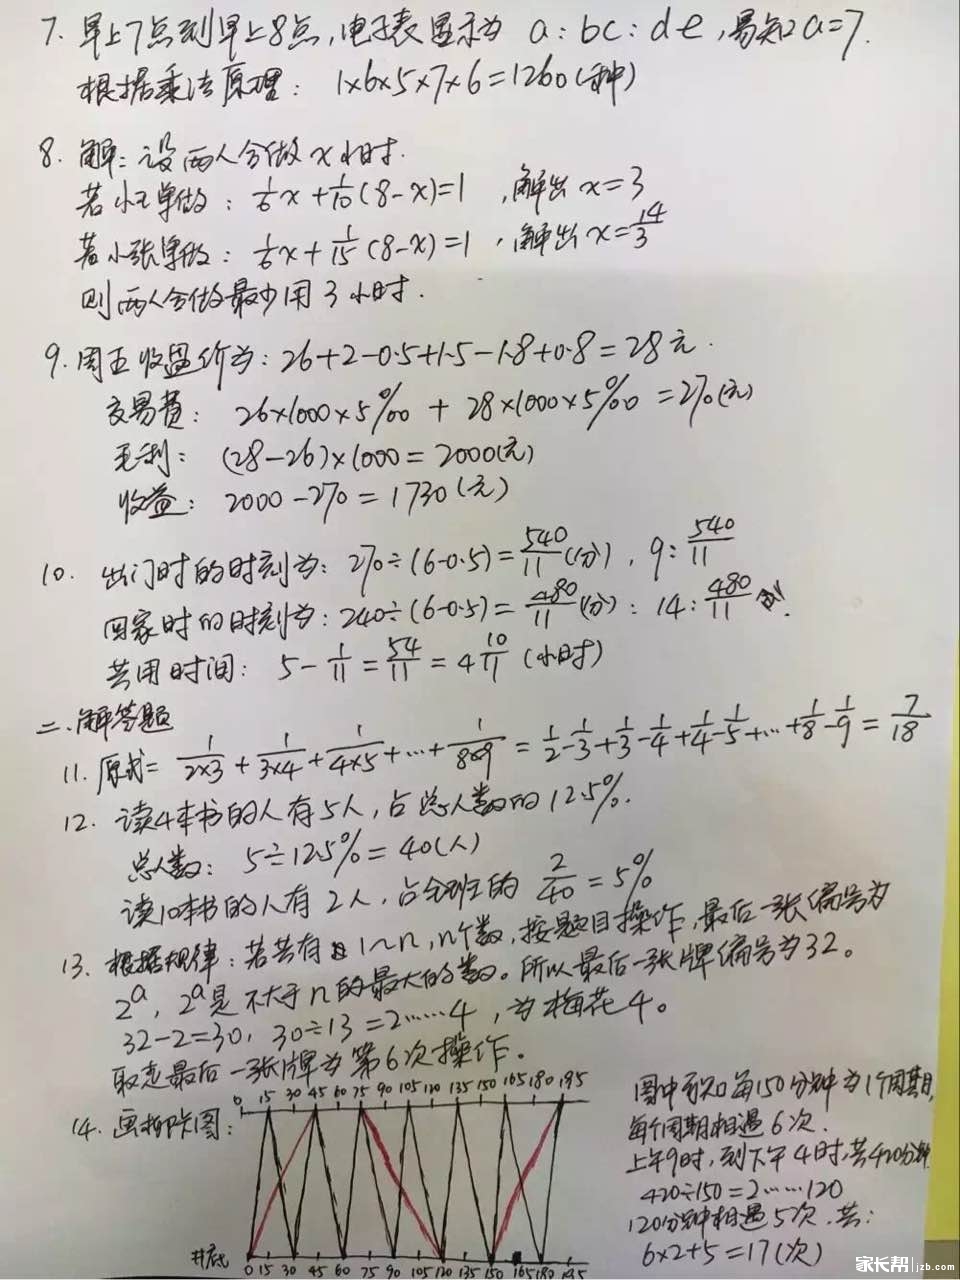 7. 早上7点到早上8点,电子表显示为 a:bc:de,易知a=7.
根据乘法原理: 1×6×5×7×6=1260(种)
8. 解:设两人合做x小时.
若小王单做: 1/6x+1/10(8-x)=1 ,解出x=3
若小张单做: 1/6x+1/15(8-x)=1 ,解出x=14/3
则两人合做最少用3小时.
9. 周五收盘价为:26+2-0.5+1.5-1.8+0.8=28元.
交易费: 26×1000×5‰+28×1000×5‰=270(元)
毛利: (28-26)×1000=2000(元)
收益: 2000-270=1730(元)
10. 出门时的时刻为:270÷(6-0.5)=540/11(分), 9:540/11
回家时的时刻为:240÷(6-0.5)=480/11(分): 14:480/11
共用时间: 5-1/11=54/11=4 10/11(小时)
二.解答题
11. 原式=1/2×3+1/3×4+1/4×5+…+1/8×9=1/2-1/3+1/3-1/4+1/4-1/5+…+1/8-1/9=7/18
12. 读4本书的人有5人,占总人数的12.5%.
总人数: 5÷12.5%=40(人)
读10本书的人有2人,占全班的 2/40=5%
13. 根据规律:若共有1~n,n个数,按题目操作,最后一张编号为
2^a, 2^a是不大于n的最大的数。所以最后一张牌编号为32。
32-2=30, 30÷13=2……4,为梅花4。
取走最后一张牌为第6次操作。
0 15 30 45 60 75 90 105 120 135 150 165 180 195
14. 画柳卡图:
井底
0 15 30 45 60 75 90 105 120 135 150 165 180 195
图中可知每150分钟为1个周期,
每个周期相遇6次.
上午9时,到下午4时,共420分钟
420÷150=2……120
120分钟相遇5次.共:
6×2+5=17(次)
家长帮|jzb.com